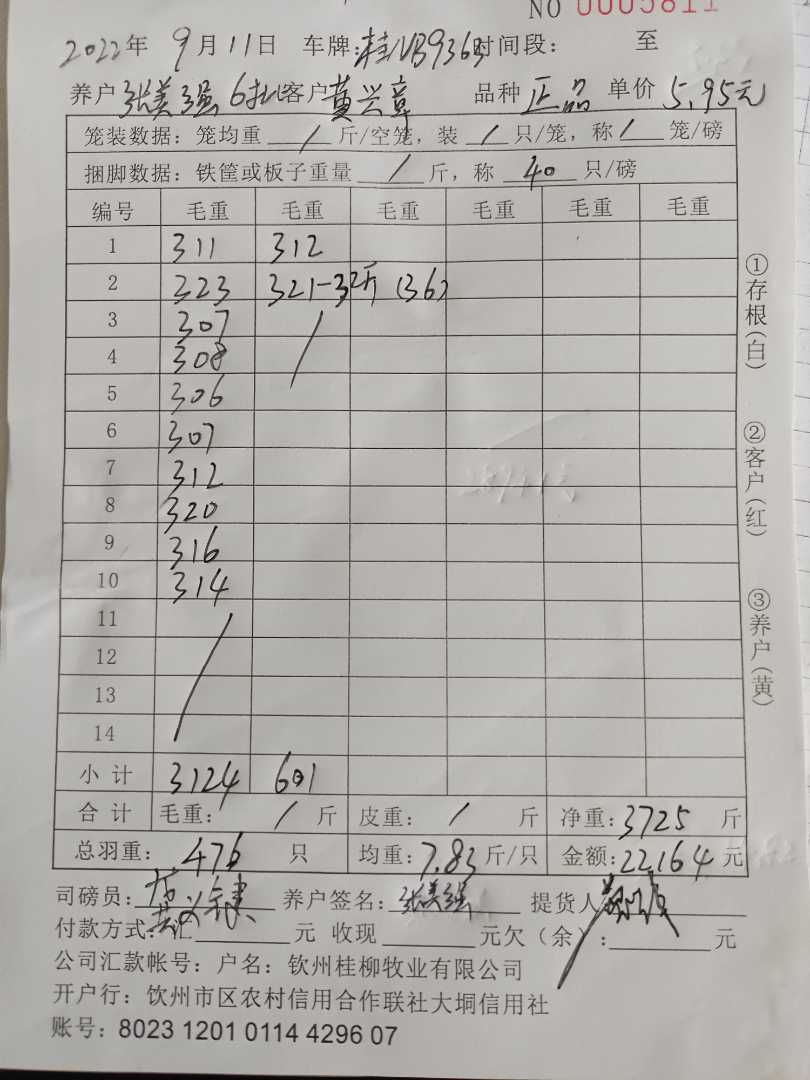 NO 0005811
2022年 9月11日 车牌:桂NB9363时间段: 至
养户 张美强 6批客户 黄兴章 品种 正品 单价 5.95元
笼装数据: 笼均重 / 斤/空笼, 装 / 只/笼, 称 / 笼/磅
捆脚数据: 铁筐或板子重量 / 斤, 称 40 只/磅
编号 毛重 毛重 毛重 毛重 毛重 毛重
1 311 312
2 323 321-32斤 (36)
3 307 /
4 308
5 306
6 307
7 312
8 320
9 316
10 314
11 /
12
13
14
小计 3124 601
合计 毛重: / 斤 皮重: / 斤 净重:3725 斤
总羽重: 476 只 均重:7.83斤/只 金额:22164元
司磅员: 养户签名: 张美强 提货人
付款方式:汇 元 收现 元欠(余): 元
公司汇款帐号: 户名: 钦州桂柳牧业有限公司
开户行: 钦州市区农村信用合作联社大垌信用社
账号: 8023 1201 0114 4296 07
①存根(白)
②客户(红)
③养户(黄)